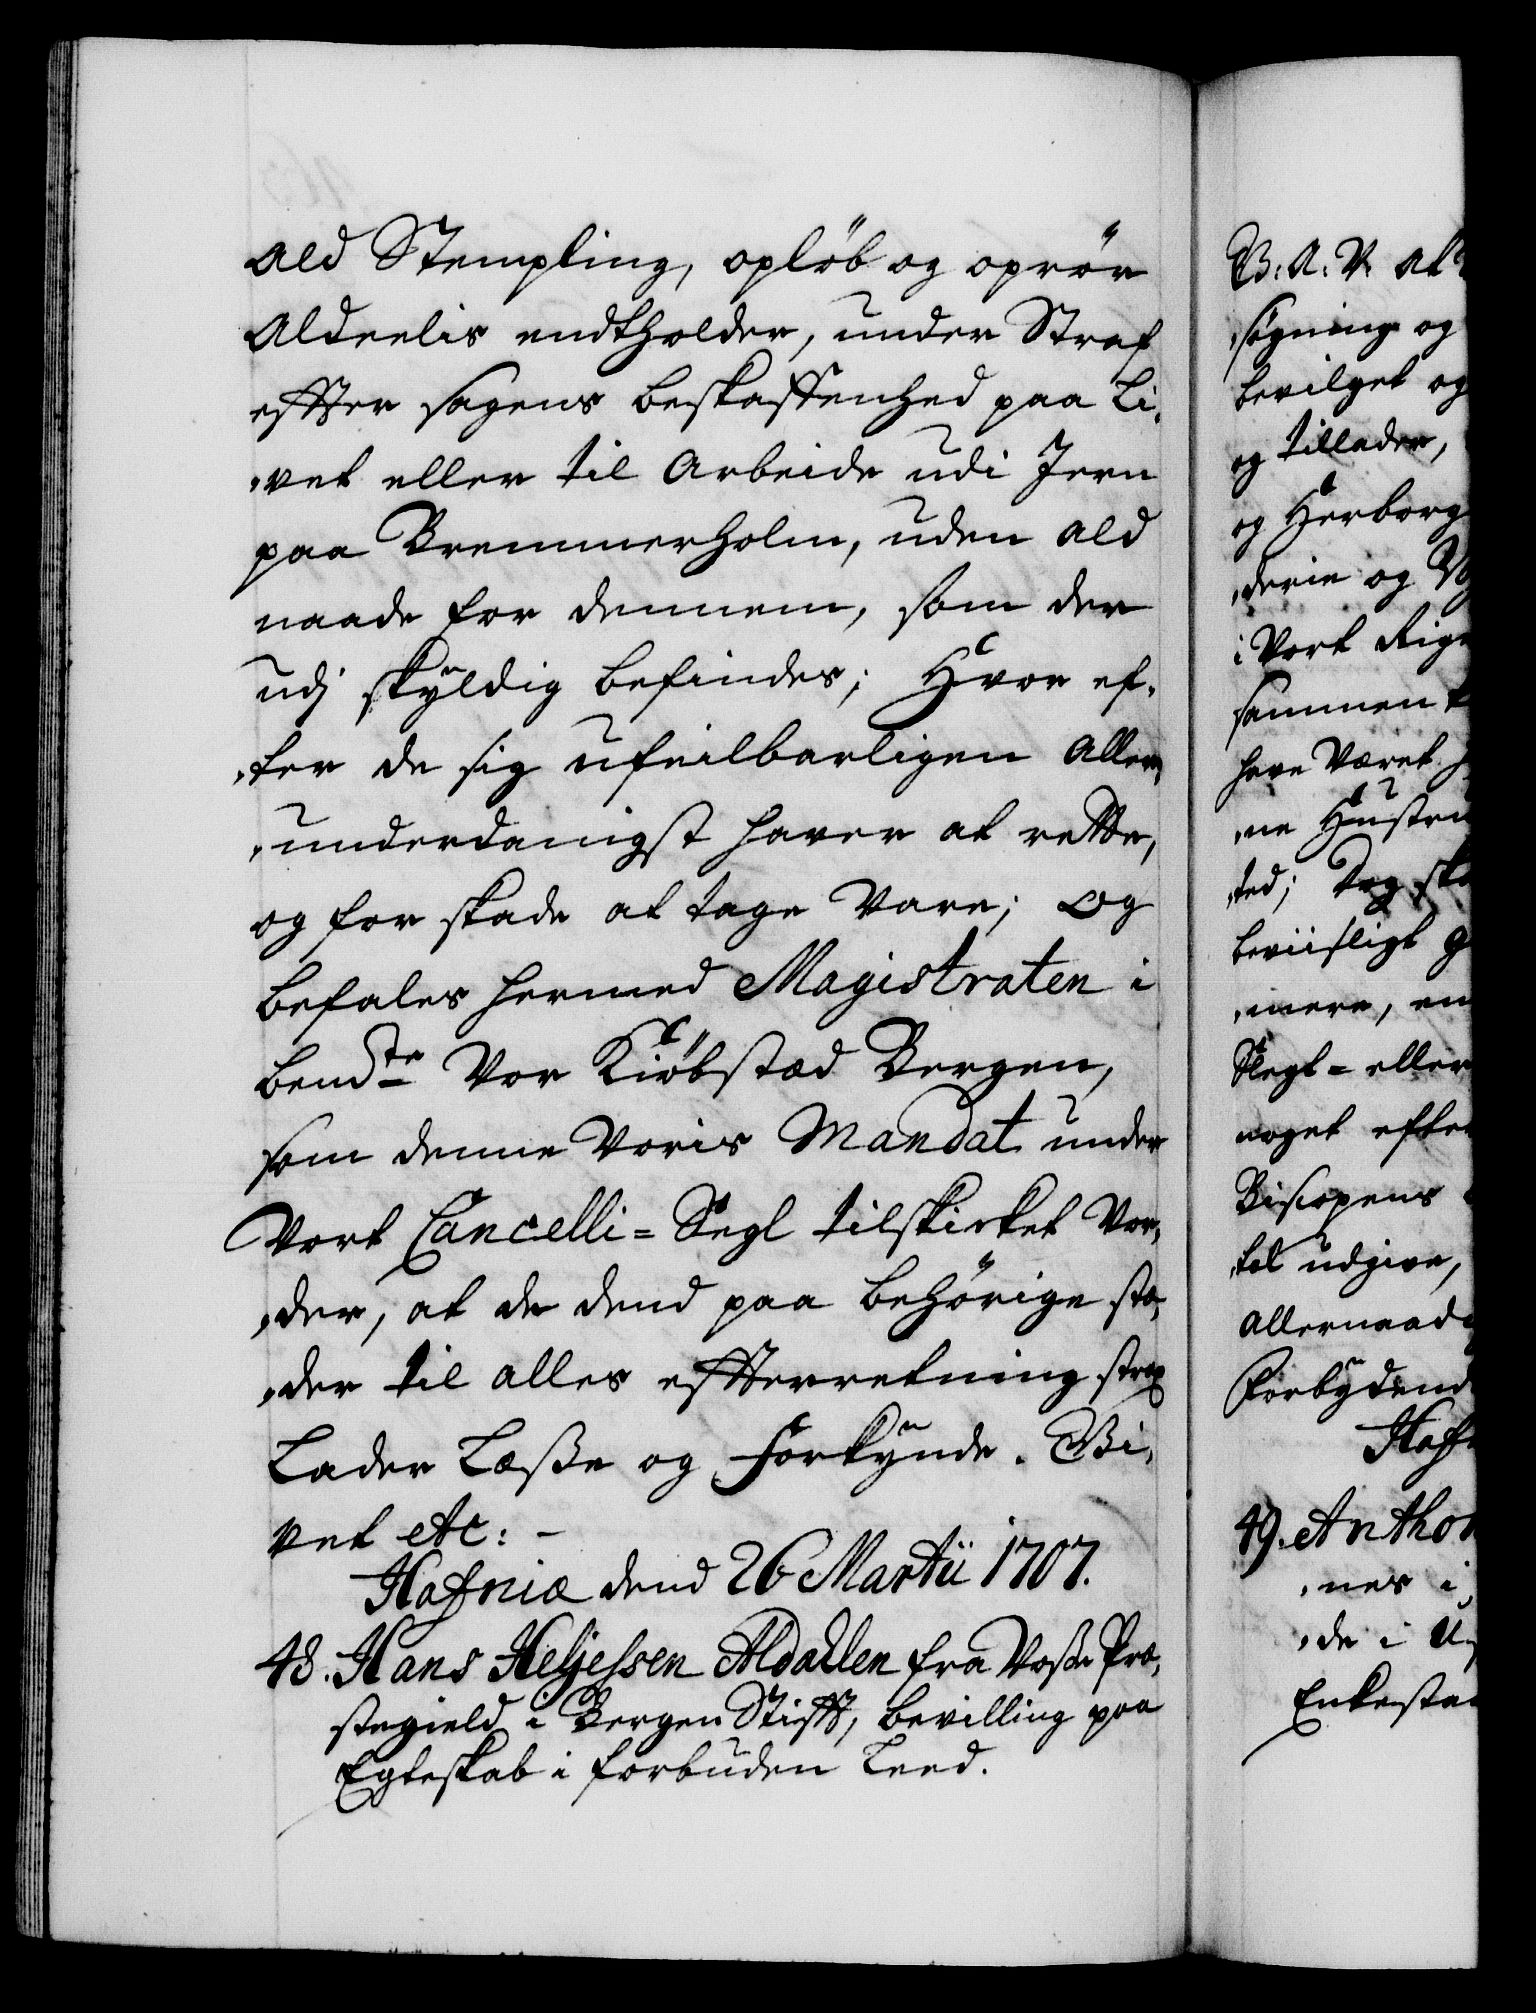 ald Stempling, opløb og oprør
Aldeelis endtholder, under Straf
effter sagens beskaffenhed paa Li,
,vet eller til Arbeide udi Jern
paa Bremmerholm, uden ald
naade for dennem, som der
udj skyldig befindes; Hvor ef,
,ter de sig ufeilbarligen Aller,
,underdanigst haver at rette,
og for skade at tage Vare; Og
befales hermed Magistraten i
bemdte Vor Kiøbstæd Bergen,
som denne Voris Mandat under
Vort Cancelli=Segl tilskicket Vor,
,der, at de dend paa behörige stæ,
,der til alles effterretning strax
Lader Læsse og Forkynde. Gi,
vet etc: –
Hafniæ dend 26 Martii 1707.
48. Hans Heljessen Aldallen fra Vosse Præ,
stegield i Bergen Stifft, bevilling paa
Egteskab i forbuden Leed.
B: A: V. at
,søgning og
bevilget og
og tillader,
og Herborg
,derie og
i Vort Rige
sammen
have Været
,ne Hustru
,ted; Dog
beviisligt
,mere, en
Slegt= eller
noget efter
Biscopens
,tal udgive,
allernaad
Forbydend
Hafn
49. Anthon
,nes i
,de i
Enkesta